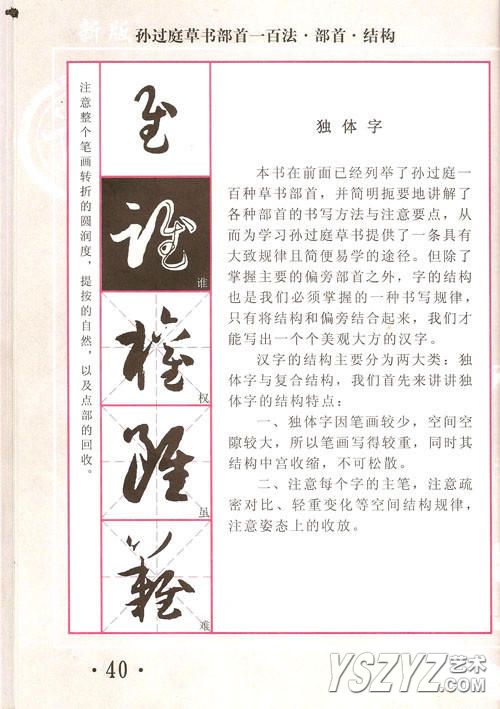 新版 孙过庭草书部首一百法·部首·结构
注意整个笔画转折的圆润度，提按的自然，以及点部的回收。
谁
权
虽
难
独体字
本书在前面已经列举了孙过庭一
百种草书部首，并简明扼要地讲解了
各种部首的书写方法与注意要点，从
而为学习孙过庭草书提供了一条具有
大致规律且简便易学的途径。但除了
掌握主要的偏旁部首之外，字的结构
也是我们必须掌握的一种书写规律，
只有将结构和偏旁结合起来，我们才
能写出一个个美观大方的汉字。
汉字的结构主要分为两大类：独
体字与复合结构，我们首先来讲讲独
体字的结构特点：
一、独体字因笔画较少，空间空
隙较大，所以笔画写得较重，同时其
结构中宫收缩，不可松散。
二、注意每个字的主笔，注意疏
密对比、轻重变化等空间结构规律，
注意姿态上的收放。
·40·
YSZYZ艺术
.COM